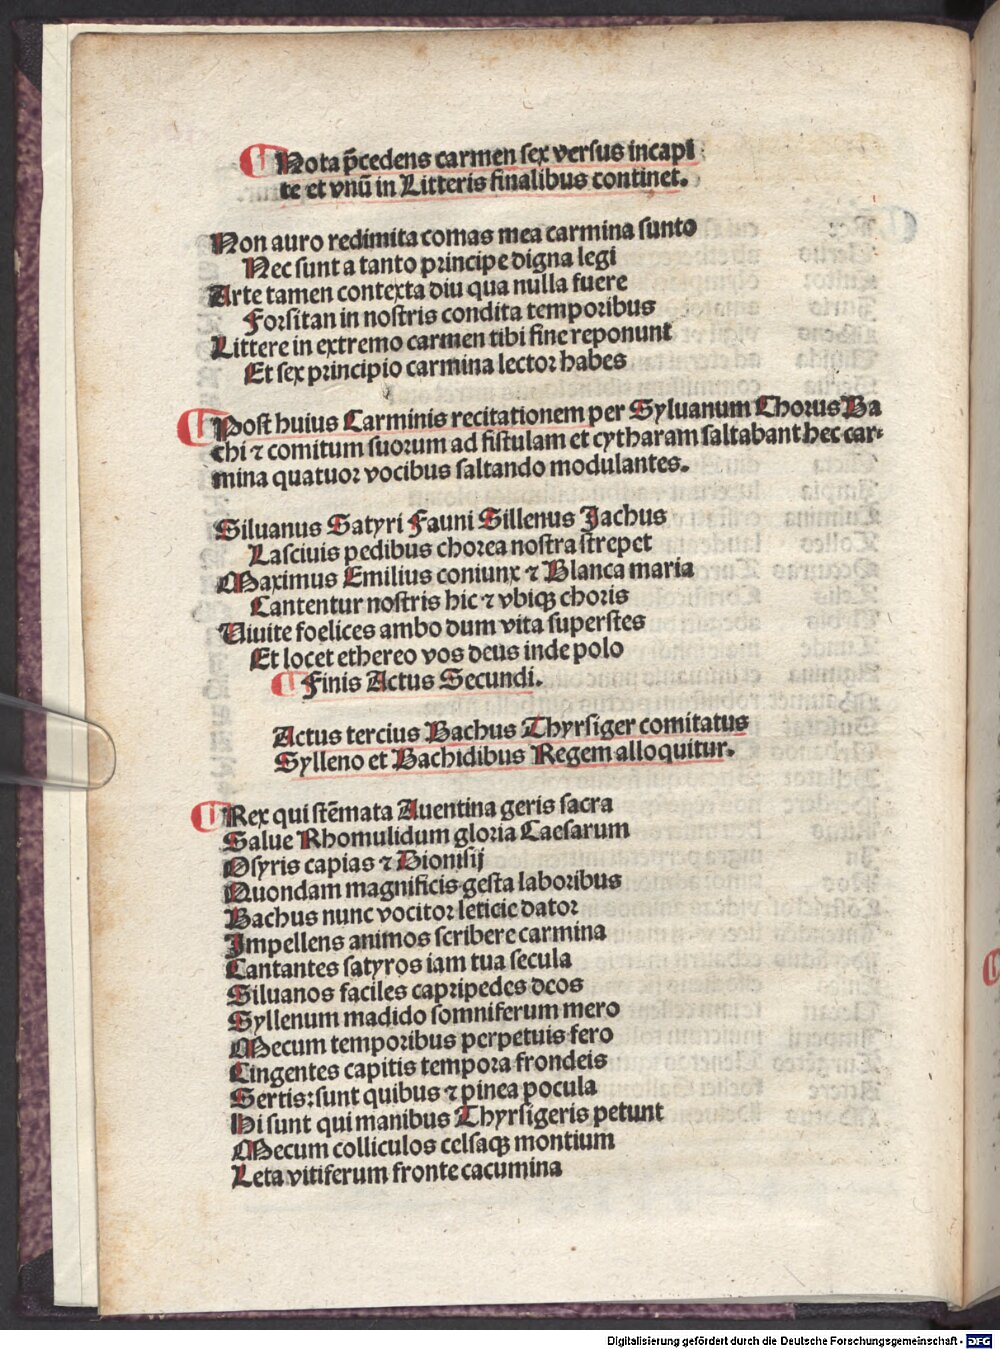 Nota p̄cedens carmen sex versus in capi
te et vnū in Litteris finalibus continet.
Non auro redimita comas mea carmina sunto
Nec sunt a tanto principe digna legi
Arte tamen contexta diu qua nulla fuere
Forsitan in nostris condita temporibus
Littere in extremo carmen tibi fine reponunt
Et sex principio carmina lector habes
Post huius Carminis recitationem per Syluanum Chorus Ba
chi ⁊ comitum suorum ad fistulam et cytharam saltabant hec car⸗
mina quatuor vocibus saltando modulantes.
Siluanus Satyri Fauni Sillenus Jachus
Lasciuis pedibus chorea nostra strepet
Maximus Emilius coniunx ⁊ Blanca maria
Cantentur nostris hic ⁊ vbiqꝫ choris
Uiuite foelices ambo dum vita superstes
Et locet ethereo vos deus inde polo
Finis Actus Secundi.
Actus tercius Bachus Thyrsiger comitatus
Sylleno et Bachidibus Regem alloquitur.
Rex qui stēmata Auentina geris sacra
Salue Rhomulidum gloria Caesarum
Osyris capias ⁊ Dionisij
Quondam magnificis gesta laboribus
Bachus nunc vocitor leticie dator
Impellens animos scribere carmina
Cantantes satyros iam tua secula
Siluanos faciles capripedes deos
Syllenum madido somniferum mero
Mecum temporibus perpetuis fero
Cingentes capitis tempora frondeis
Sertis: sunt quibus ⁊ pinea pocula
Hi sunt qui manibus Thyrsigeris petunt
Mecum colliculos celsaqꝫ montium
Leta vitiferum fronte cacumina
Digitalisierung gefördert durch die Deutsche Forschungsgemeinschaft - DFG